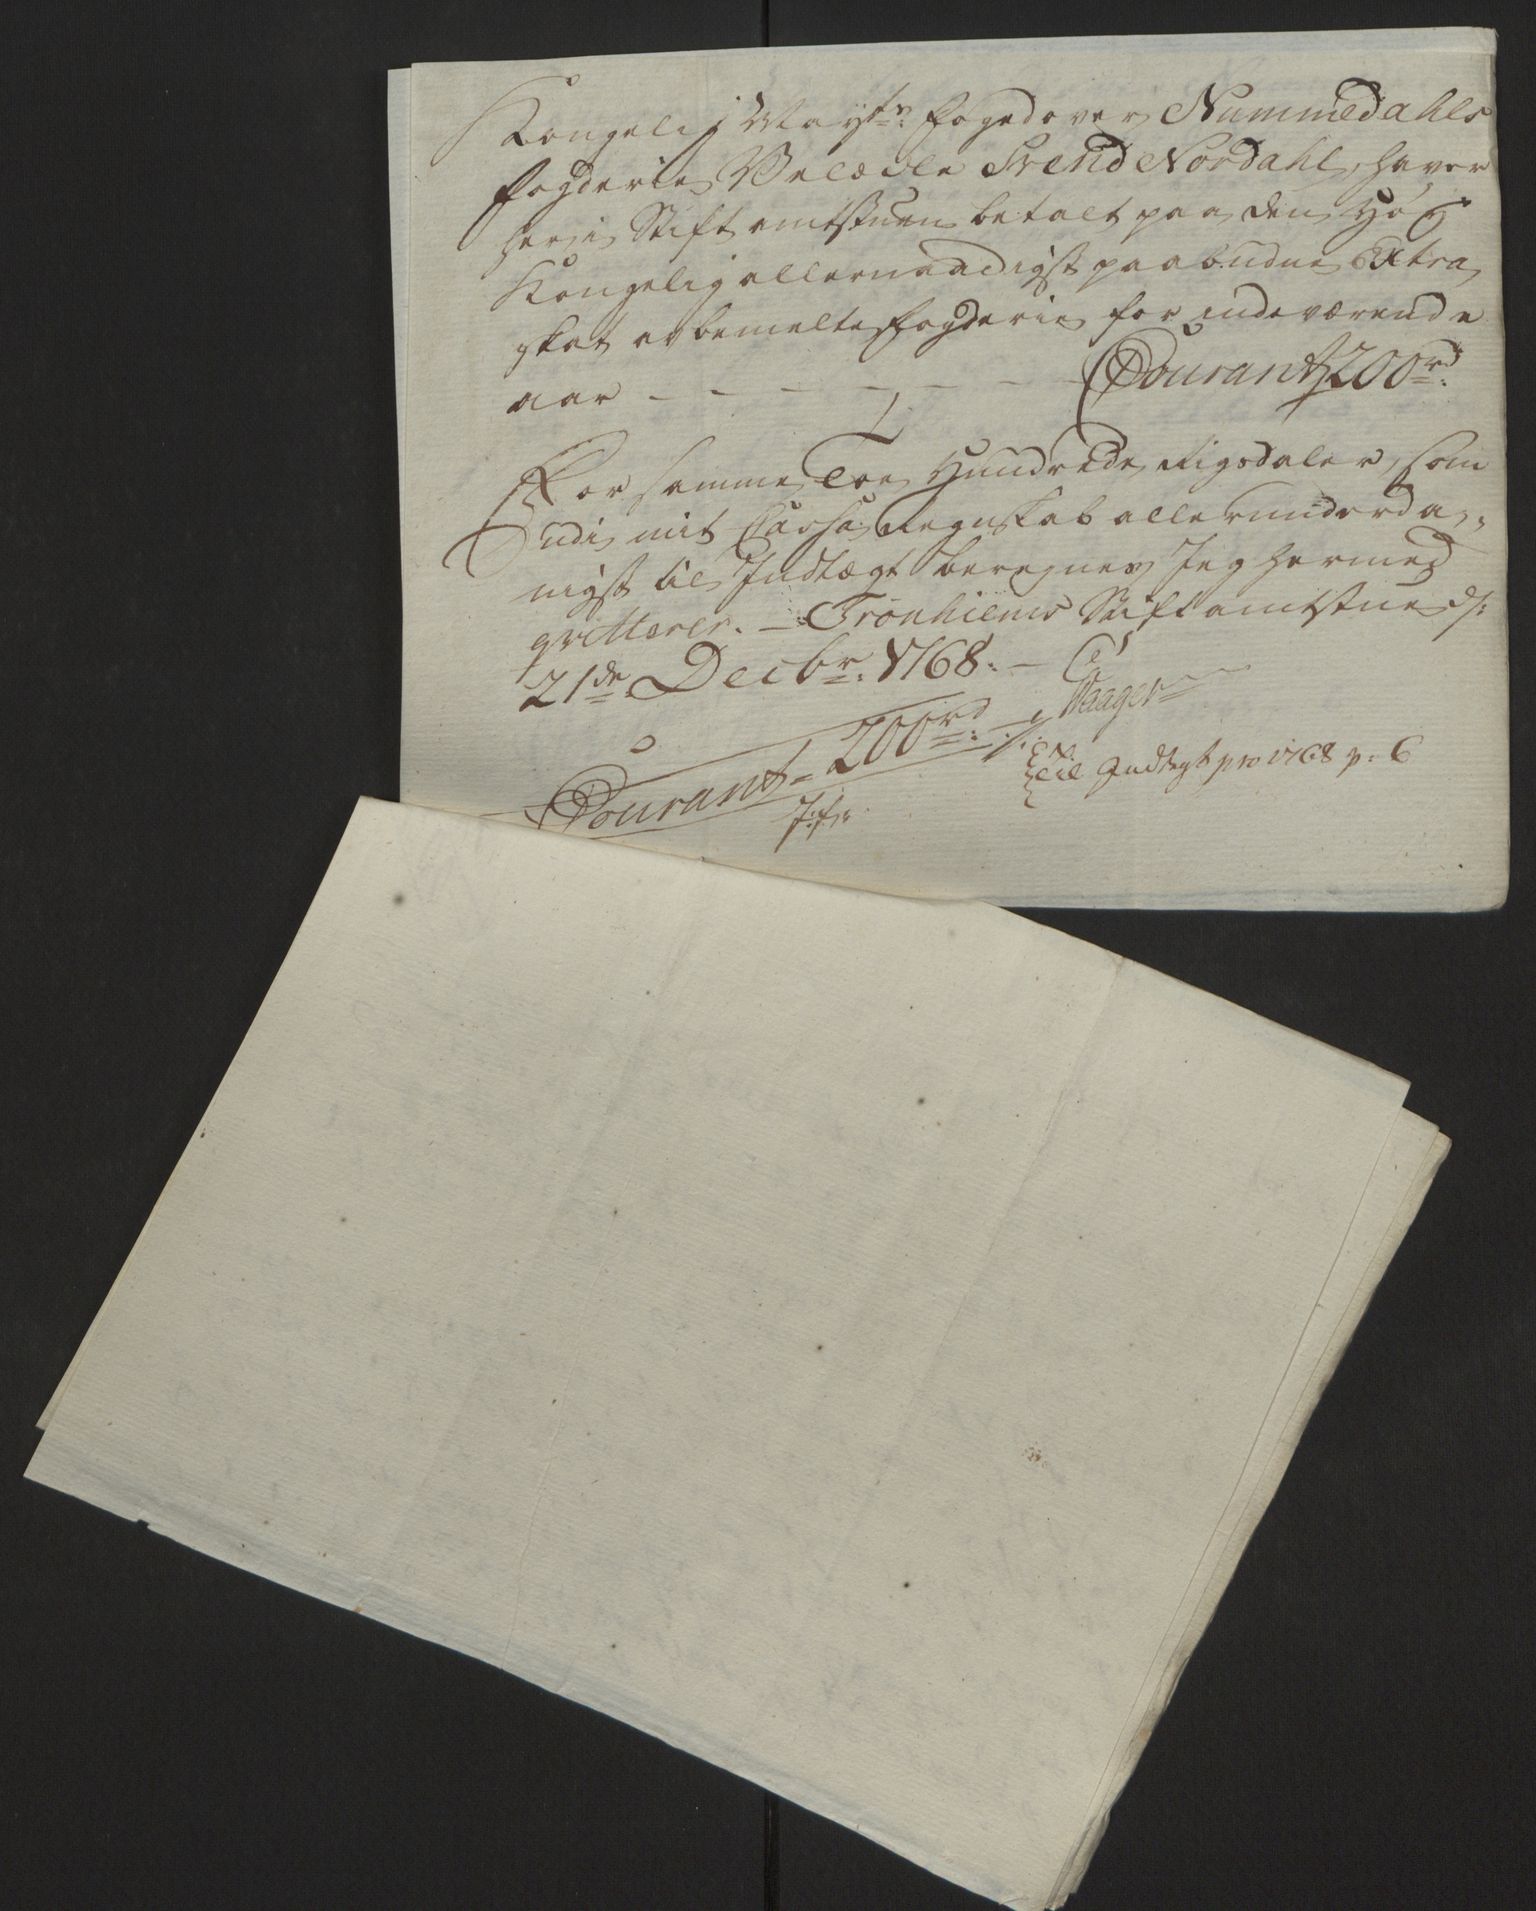 Kongelig Mayts: foged over Nummedahls
fogderie Velædle Svend Nordahl, haver
her i Stiftamtstuen betalt paa den Høy
Kongelig allernaadigst paabudne Extra
skat av bemelte fogderie for indeværende
aar - - - - - - Courant 200rd:
For samme Toe Hundrede Rigsdaler, som
udi mit Cassa Regnskab allerunderda-
nigst til Indtægt beregnes, Jeg hermed
qvitterer. - Tronhiems Stiftamtstue d:
21de Decbr: 1768. -
Courant - 200rd:
Haager
til Indtegt pro 1768 p: 6